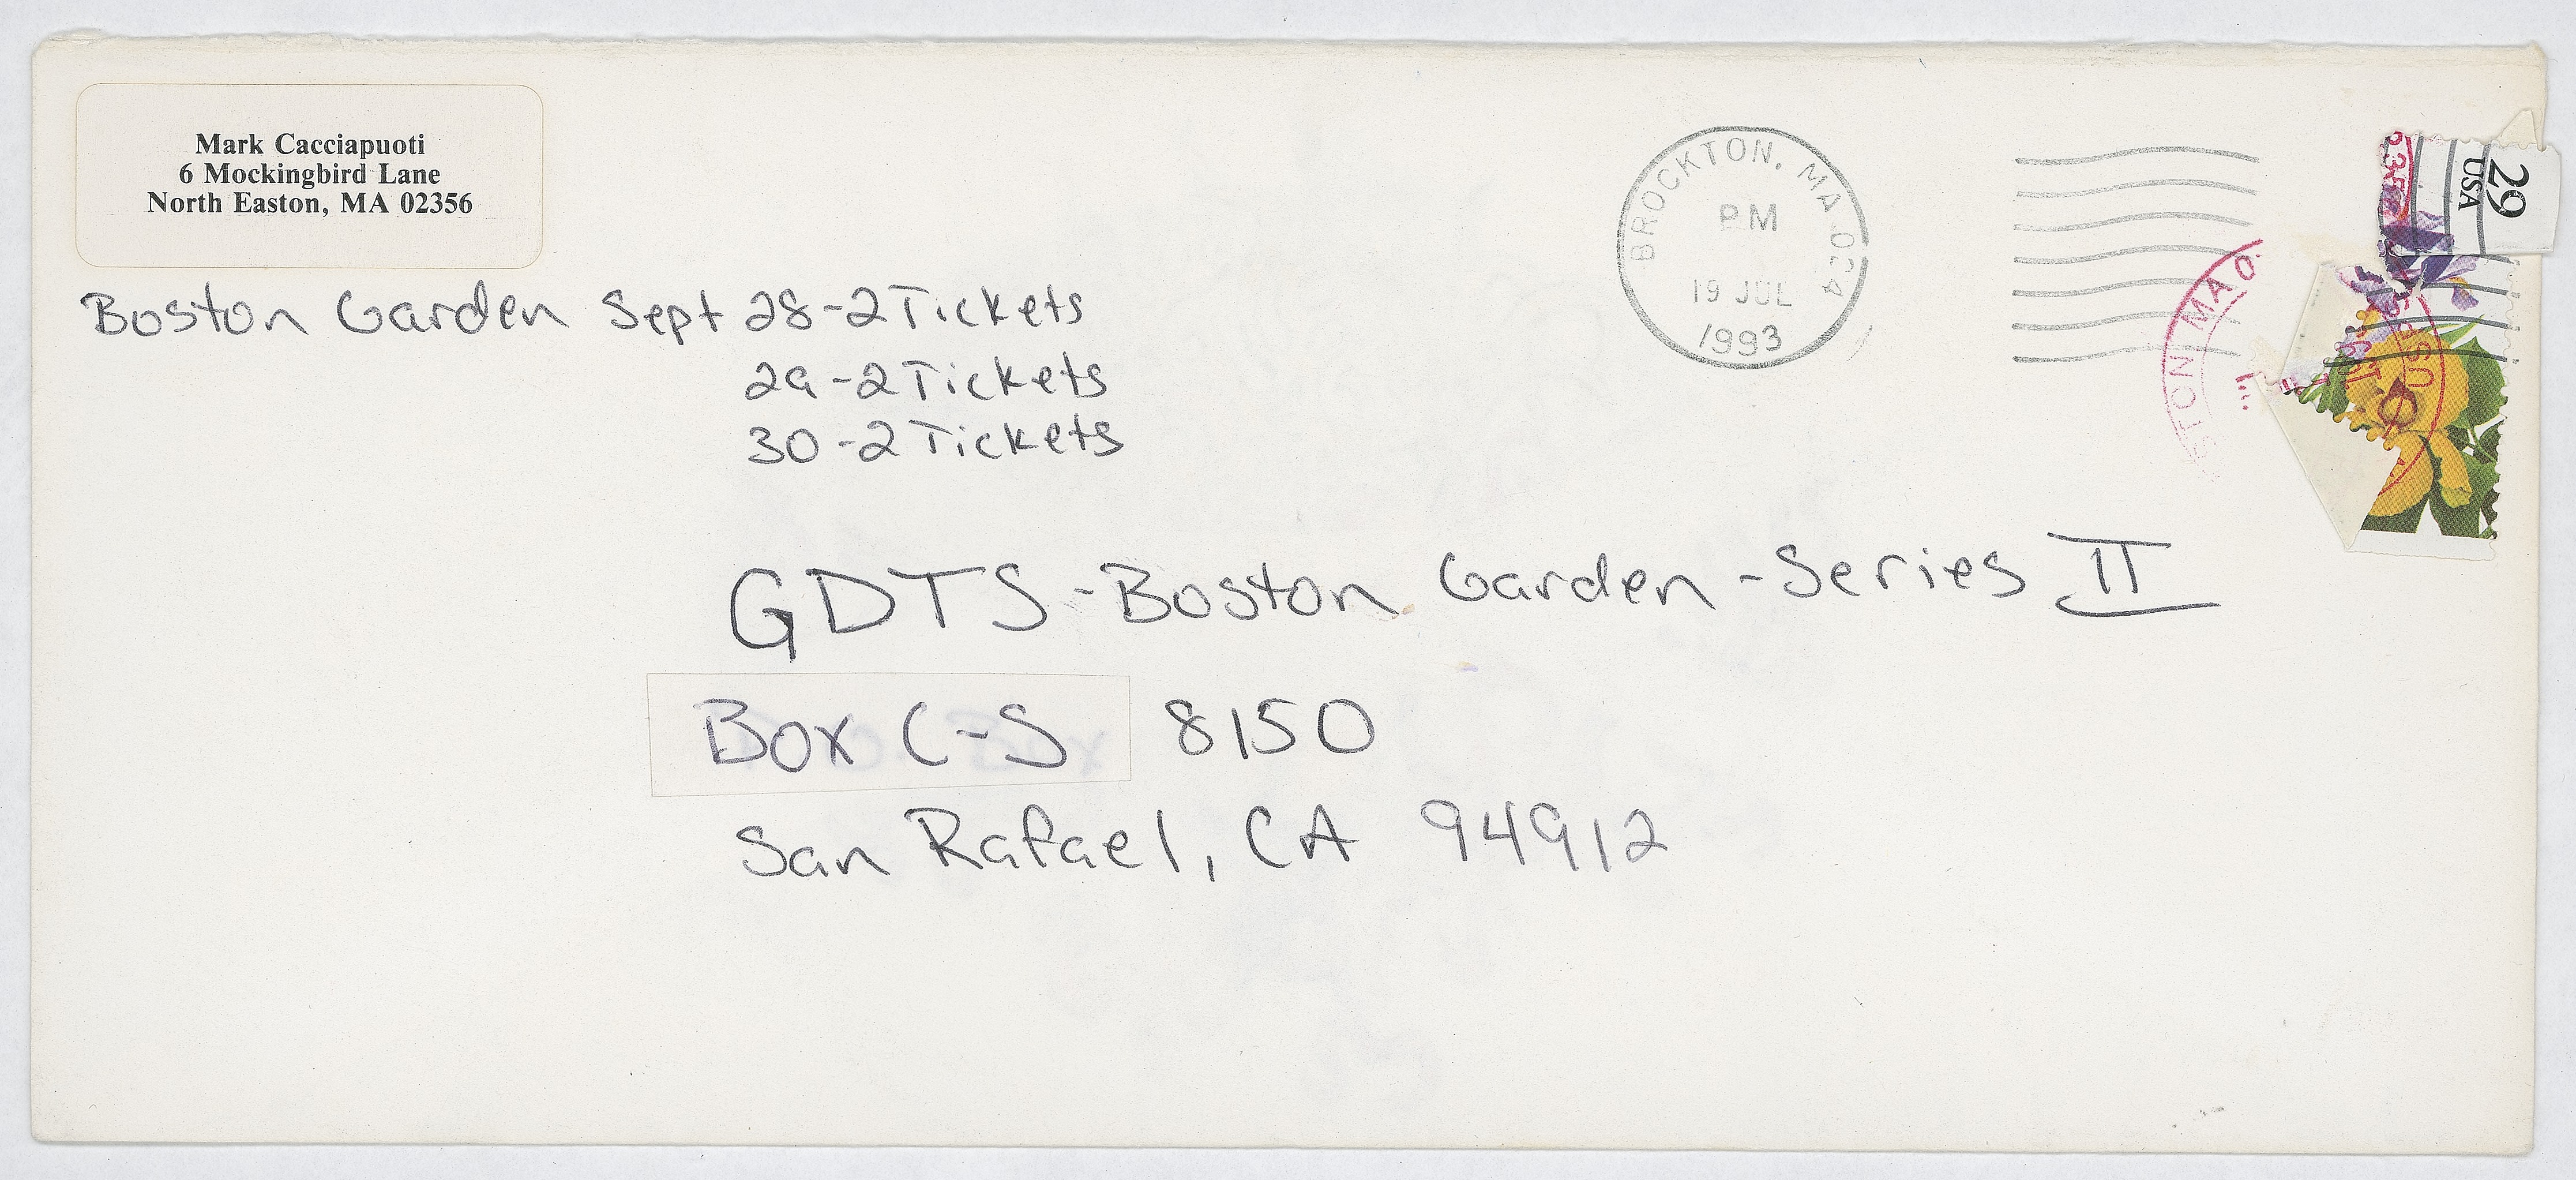 Mark Cacciapuoti
6 Mockingbird Lane
North Easton, MA 02356
Boston Garden Sept 28-2 Tickets
29-2 Tickets
30-2 Tickets
BROCKTON, MA 024
PM
19 JUL
1993
29
USA
STON MA 0
USPS
GDTS-Boston Garden-Series II
Box C-S 8150
San Rafael, CA 94912